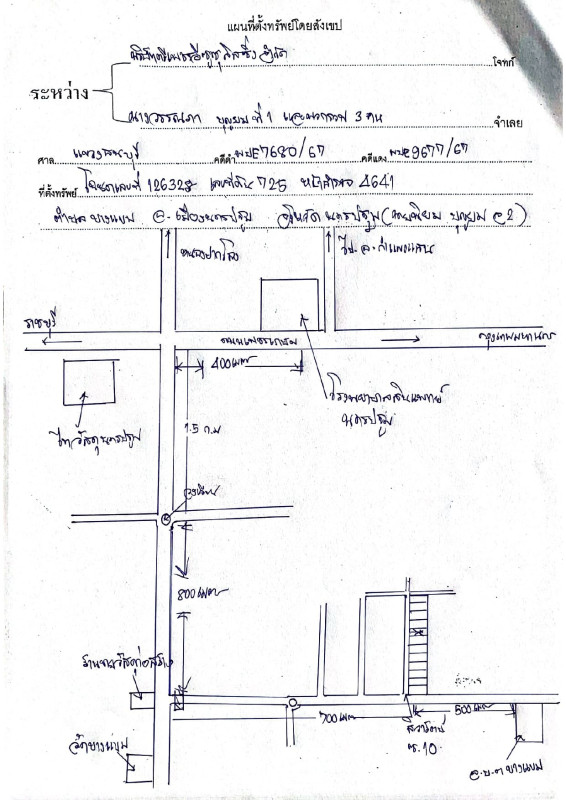 แผนที่ตั้งทรัพย์โดยสังเขป
โจทก์
ระหว่าง
นางวรรณภา บุญยม ที่ 1 และพวกรวม 3 คน จำเลย
ศาล แพ่งธนบุรี คดีดำ ผบE7680/67 คดีแดง ผบE9677/67
ที่ตั้งทรัพย์ โฉนดเลขที่ 126328 เลขที่ดิน 725 หน้าสำรวจ 4641
ตำบล บางแขม อ.เมืองนครปฐม จังหวัด นครปฐม
หนองปากโลง
ไป อ.กำแพงแสน
ราชบุรี
ถนนเพชรเกษม
กรุงเทพมหานคร
400 เมตร
โรงพยาบาลสินแพทย์
นครปฐม
ไทวัสดุนครปฐม
1.5 ก.ม
วงเวียน
800 เมตร
ร้านขายวัสดุก่อสร้าง
700 เมตร
500 เมตร
ซ.10
วัดบางแขม
อ.บ.ต บางแขม